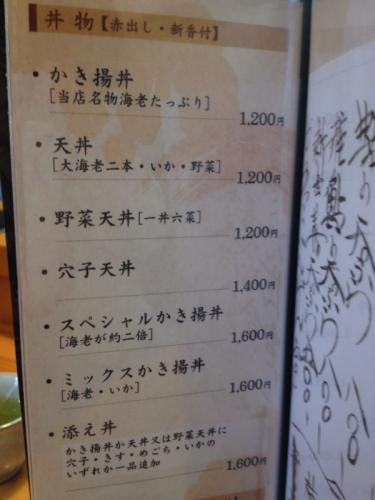 丼物【赤出し・新香付】
・かき揚丼
[当店名物海老たっぷり]
1,200円
・天丼
[大海老二本・いか・野菜]
1,200円
・野菜天丼[一丼六菜]
1,200円
・穴子天丼
1,400円
・スペシャルかき揚丼
[海老が約二倍]
1,600円
・ミックスかき揚丼
[海老・いか]
1,600円
・添え丼
かき揚丼か天丼又は野菜天丼に
穴子・きす・めごち・いかの
いずれか一品追加
1,600円